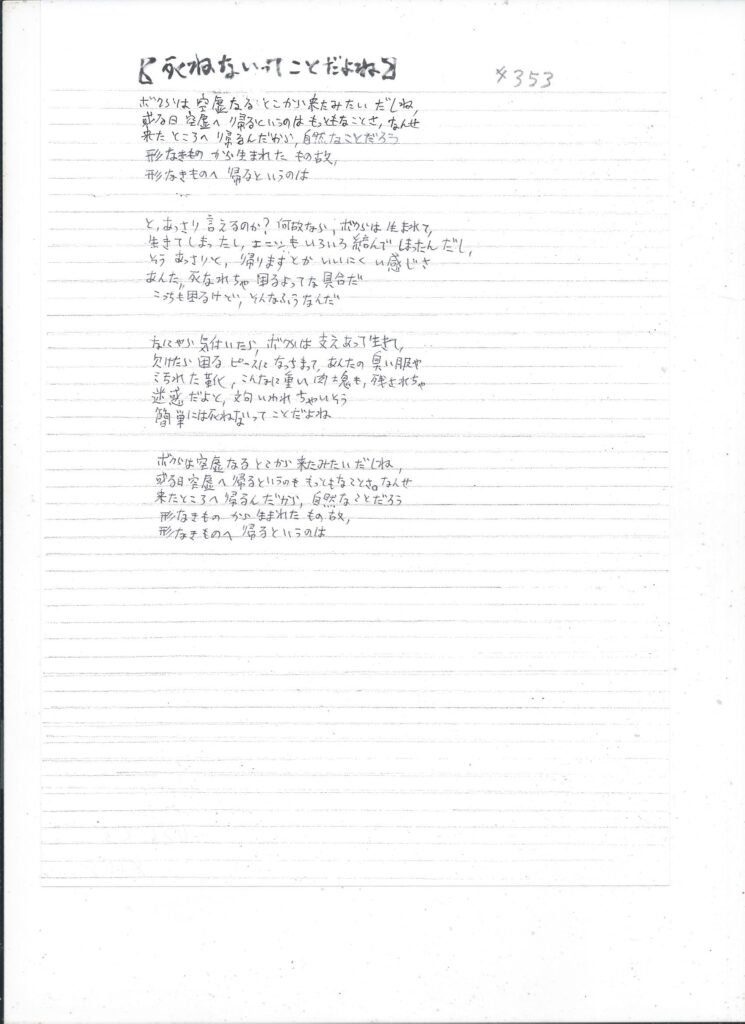 【死ねないってことだよね】 #353
ボクらは空虚なるとこから来たみたいだしね,
或る日空虚へ帰るというのはもっともなことさ,なんせ
来たところへ帰るんだから,自然なことだろう
形なきものから生まれたもの故,
形なきものへ帰るというのは
と,あっさり言えるのか?何故なら,ボクらは生まれて,
生きてしまったし,エニシもいろいろ結んでしまったんだし,
そうあっさりと,帰りますとかいいにくい感じさ
あんた,死なれちゃ困るよってな具合だ
こっちも困るけど,そんなふうなんだ
なにやら気付いたら,ボクらは支えあって生きて,
欠けたら困るピースになっちまって,あんたの臭い服や
汚れた靴,こんなに重い肉塊も,残されちゃ
迷惑だよと,文句いわれちゃいそう
簡単には死ねないってことだよね
ボクらは空虚なるとこから来たみたいだしね,
或る日空虚へ帰るというのももっともなことさ。なんせ
来たところへ帰るんだから,自然なことだろう
形なきものから生まれたもの故,
形なきものへ帰るというのは